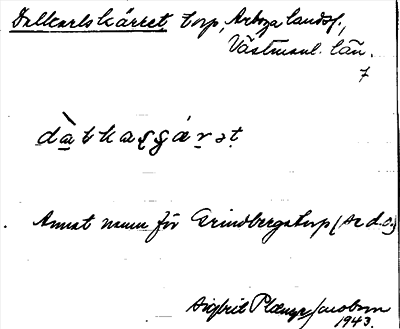 Dalkarlskärret torp, Arboga landsf.,
Västmanl. län.
7
Annat namn för Grindbergstorp (se d.o.)
Sigbrit Plænge Jacobson
1943.